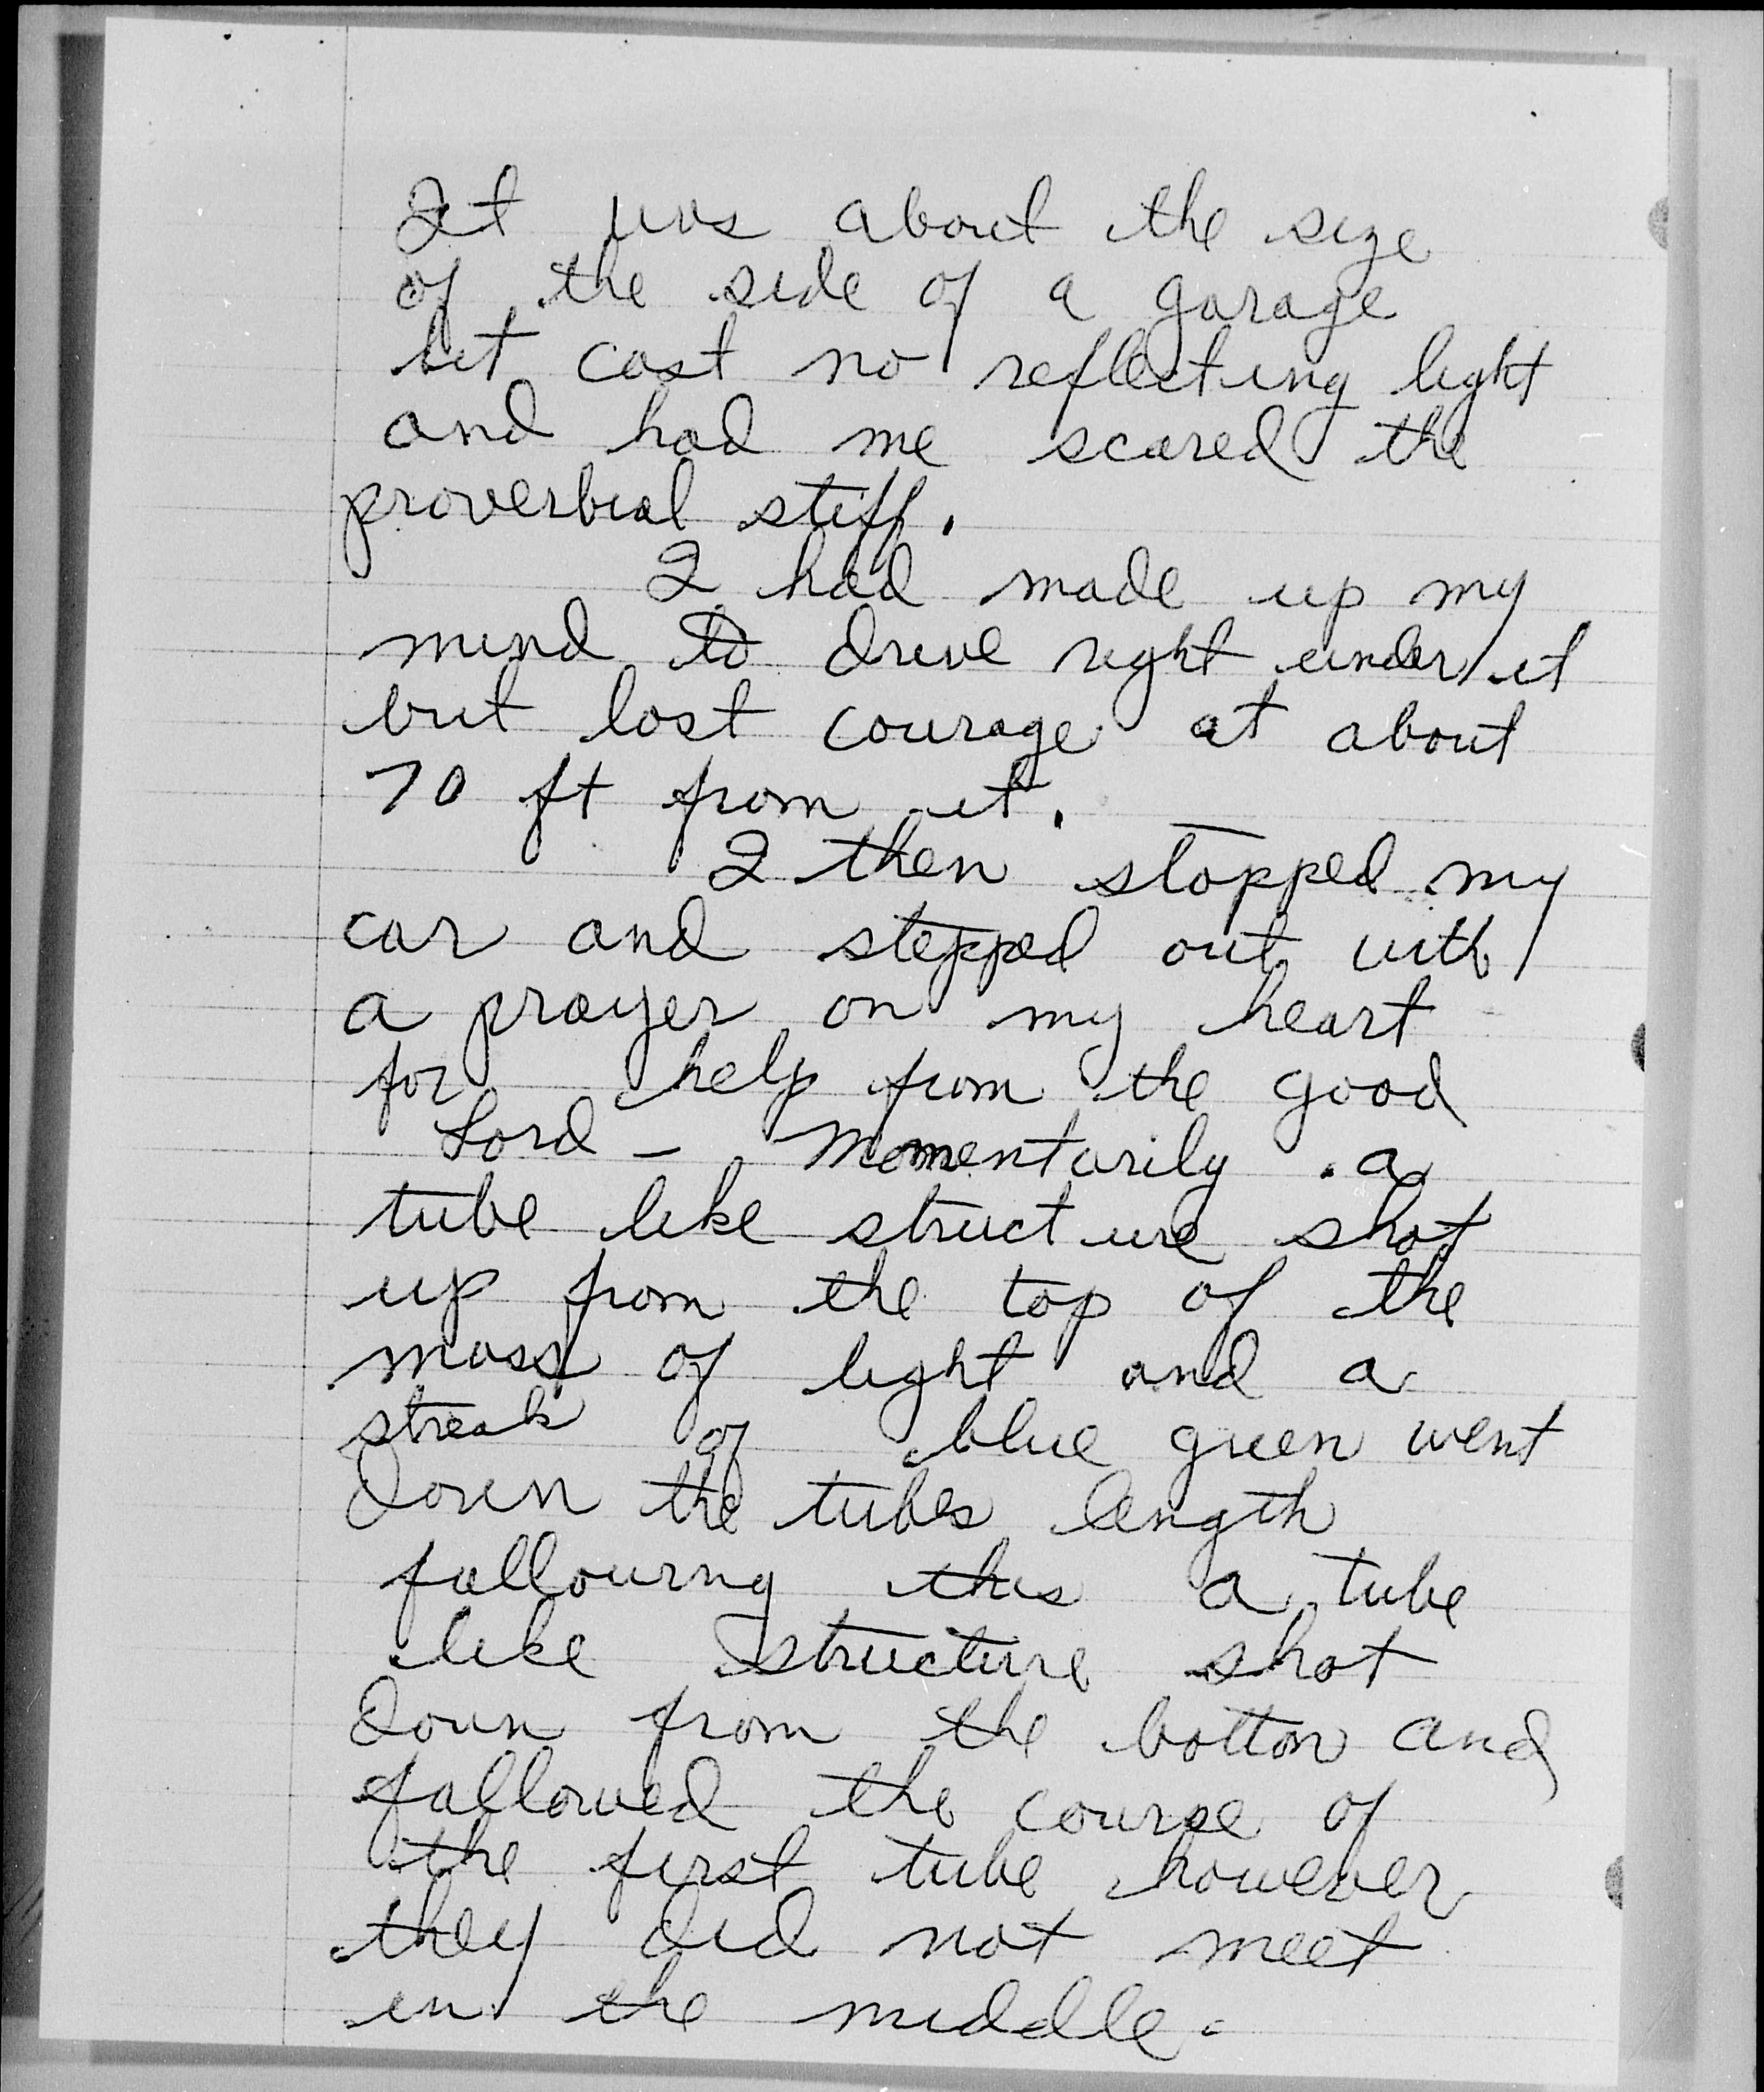 It was about the size
of the side of a garage
but cast no reflecting light
and had me scared the
proverbial stiff.
I had made up my
mind to drive right under it
but lost courage at about
70 ft from it.
I then stopped my
car and stepped out with
a prayer on my heart
for help from the good
Lord - Momentarily a
tube like structure shot
up from the top of the
mass of light and a
streak of blue green went
down the tubes length
following this a tube
like structure shot
down from the botton and
followed the course of
the first tube however
they did not meet
in the middle.